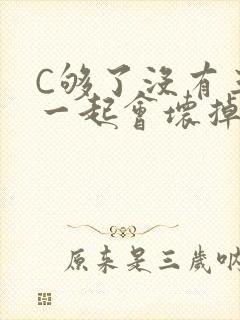 C够了没有
一起會壞掉
原来是三歲吶